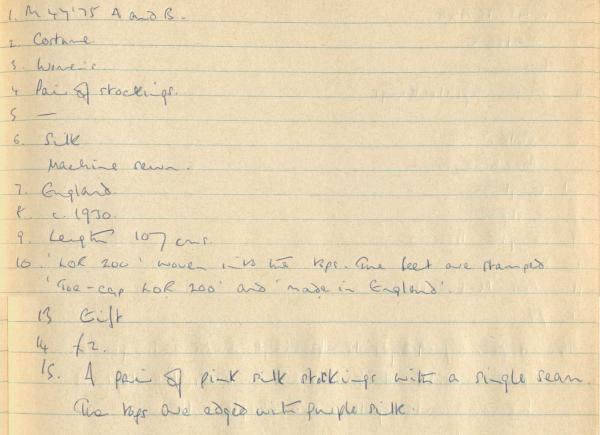 1. M 44'75 A and B.
2. Costume
3. Women's
4. Pair of stockings.
5 —
6. Silk
Machine sewn.
7. England
8 c. 1930.
9. Length 107 cms.
10. 'LOR 200' woven into the tops. The feet are stamped
'Toe-cap LOR 200' and 'made in England'.
13 Gift
14 £2.
15. A pair of pink silk stockings with a single seam.
The tops are edged with purple silk.